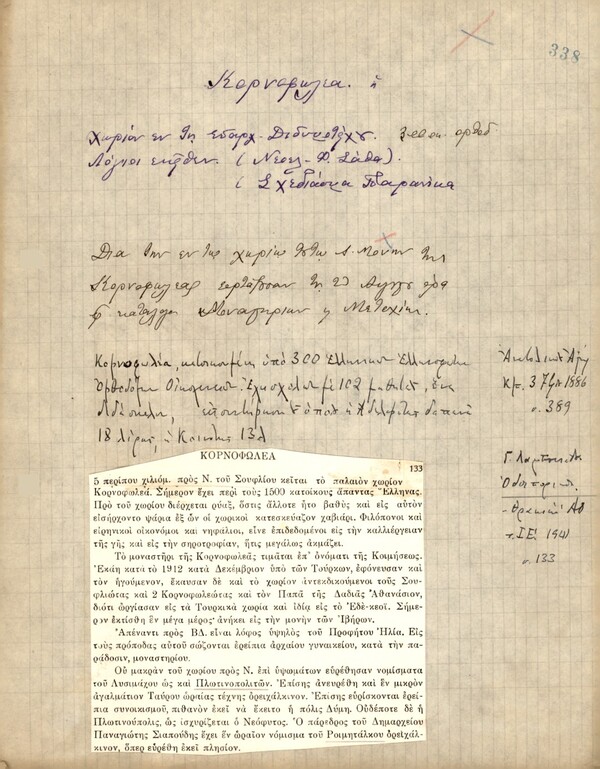 338
Κορνοφωλεα. ἤ
χωρίον εν τη επαρχ. Διδυμοτείχου. ορθοδ.
Λόγιοι εκείθεν. ( Νεοελ. Φ. Σάθα).
( Σχεδίασμα
Δια την εν τω χωρίω τούτω Ι. Μονην της
Κορνοφωλεας εορτάζουσαν τη 23 Αυγγ ορα
κατάλογ Μοναστηριων η Μετοχίων.
Κορνοφωλία, κατοικουμένη ὑπὸ 300 Ἑλληνικῶν
Ὀρθοδόξων Οἰκογενειῶν. Ἔχει σχολεῖον μὲ 102 μαθητάς, ἕνα
διδάσκαλον,
18 λίρας, ἡ Κοινότης 13
κ/π. 3 7βρ 1886
σ. 389
Ὁδοιπορικόν
Θρακικά
τ. ΙΕ. 1941
σ. 133
ΚΟΡΝΟΦΩΛΕΑ
133
5 περίπου χιλιόμ. πρὸς Ν. τοῦ Σουφλίου κεῖται τὸ παλαιὸν χωρίον
Κορνοφωλεά. Σήμερον ἔχει περὶ τοὺς 1500 κατοίκους ἅπαντας Ἕλληνας.
Πρὸ τοῦ χωρίου διέρχεται ρύαξ, ὅστις ἄλλοτε ἦτο βαθὺς καὶ εἰς αὐτὸν
εἰσήρχοντο ψάρια ἐξ ὧν οἱ χωρικοὶ κατεσκεύαζον χαβιάρι. Φιλόπονοι καὶ
εἰρηνικοὶ οἰκονόμοι καὶ νηφάλιοι, εἶνε ἐπιδεδομένοι εἰς τὴν καλλιέργειαν
τῆς γῆς καὶ εἰς τὴν σηροτροφίαν, ἥτις μεγάλως ἀκμάζει.
Τὸ μοναστῆρι τῆς Κορνοφωλεᾶς τιμᾶται ἐπ' ὀνόματι τῆς Κοιμήσεως.
Ἐκάη κατὰ τὸ 1912 κατὰ Δεκέμβριον ὑπὸ τῶν Τούρκων, ἐφόνευσαν καὶ
τὸν ἡγούμενον, ἔκαυσαν δὲ καὶ τὸ χωρίον ἀντεκδικούμενοι τοὺς Σου-
φλιώτας καὶ 2 Κορνοφωλεώτας καὶ τὸν Παπᾶ τῆς Δαδιᾶς Ἀθανάσιον,
διότι ὠργίασαν εἰς τὰ Τουρκικὰ χωρία καὶ ἰδίᾳ εἰς τὸ Ἐδὲ-κεοϊ. Σήμε-
ρον ἐκτίσθη ἓν μέγα μέρος· ἀνήκει εἰς τὴν μονὴν τῶν Ἰβήρων.
Ἀπέναντι πρὸς ΒΔ. εἶναι λόφος ὑψηλὸς τοῦ Προφήτου Ἠλία. Εἰς
τοὺς πρόποδας αὐτοῦ σώζονται ἐρείπια ἀρχαίου γυναικείου, κατὰ τὴν πα-
ράδοσιν, μοναστηρίου.
Οὐ μακρὰν τοῦ χωρίου πρὸς Ν. ἐπὶ ὑψωμάτων εὑρέθησαν νομίσματα
τοῦ Λυσιμάχου ὡς καὶ Πλωτινοπολιτῶν. Ἐπίσης ἀνευρέθη καὶ ἓν μικρὸν
ἀγαλμάτιον Ταύρου ὡραίας τέχνης ὀρειχάλκινον. Ἐπίσης εὑρίσκονται ἐρεί-
πια συνοικισμοῦ, πιθανὸν ἐκεῖ νὰ ἔκειτο ἡ πόλις Δύμη. Οὐδέποτε δὲ ἡ
Πλωτινούπολις, ὡς ἰσχυρίζεται ὁ Νεόφυτος. Ὁ πάρεδρος τοῦ Δημαρχείου
Παναγιώτης Σιαπούδης ἔχει ἓν ὡραῖον νόμισμα τοῦ Ροιμητάλκου ὀρειχάλ-
κινον, ὅπερ εὑρέθη ἐκεῖ πλησίον.